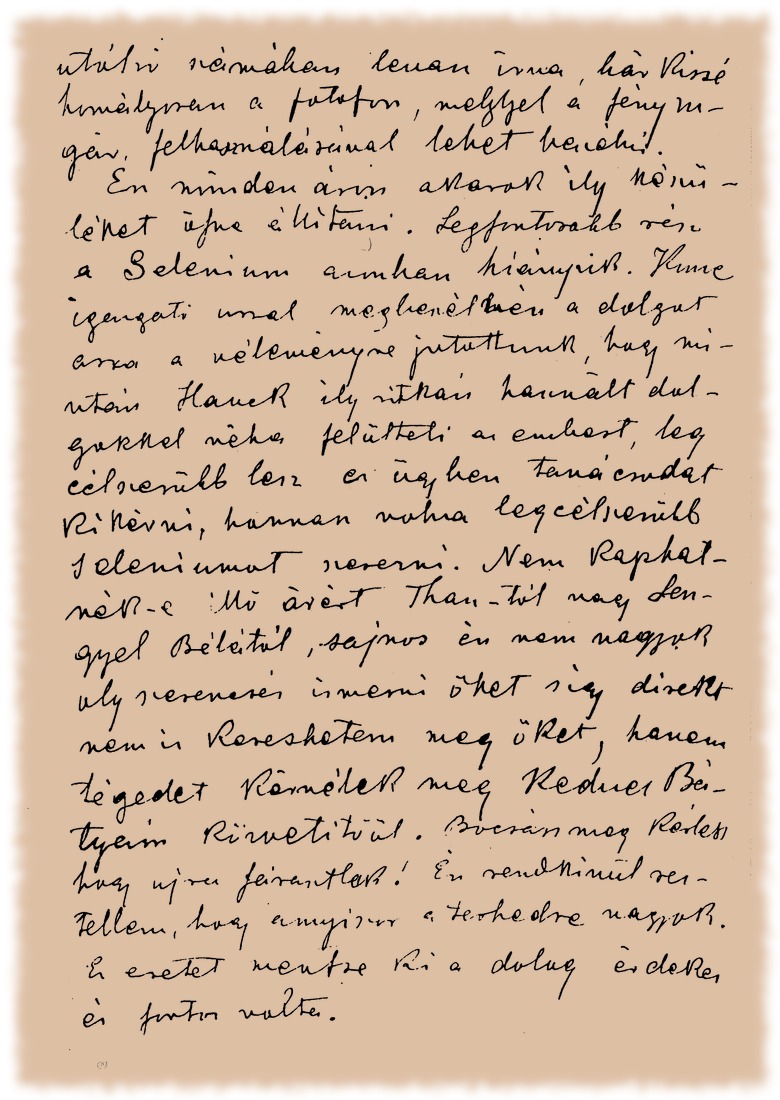 utólsó számában levan irva, bár kissé
homályosan a fotofon, mellyel a fény m-
gár. felhasználásával lehet beszélni.
Én minden áron akarok ily készü-
léket öszve állitani. Legfontosabb rész
a Selenium azonban hiányzik. Kunc
igazgató urral megbeszélvén a dolgot
arra a véleményre jutottunk, hogy mi-
után Hauck ily ritkán használt dol-
gokkal néha felülteti az embert, leg
célszerűbb lesz ez ügyben tanácsodat
kikérni, honnan volna legcélszerűbb
Seleniumot szerezni. Nem kaphat-
nék-e illő árért Than-tól vagy Len-
gyel Bélától, sajnos én nem vagyok
oly szerencsés ismerni őket s így direkt
nem is kereshetem meg őket, hanem
tégedet kérnélek meg Kedves Bá-
tyám közvetitőül. Bocsáss meg kérlek
hogy ujra fárasztlak! Én rendkivül res-
tellem, hogy annyiszor a terhedre vagyok.
Ez esetet mentse ki a dolog érdekes
és fontos volta.